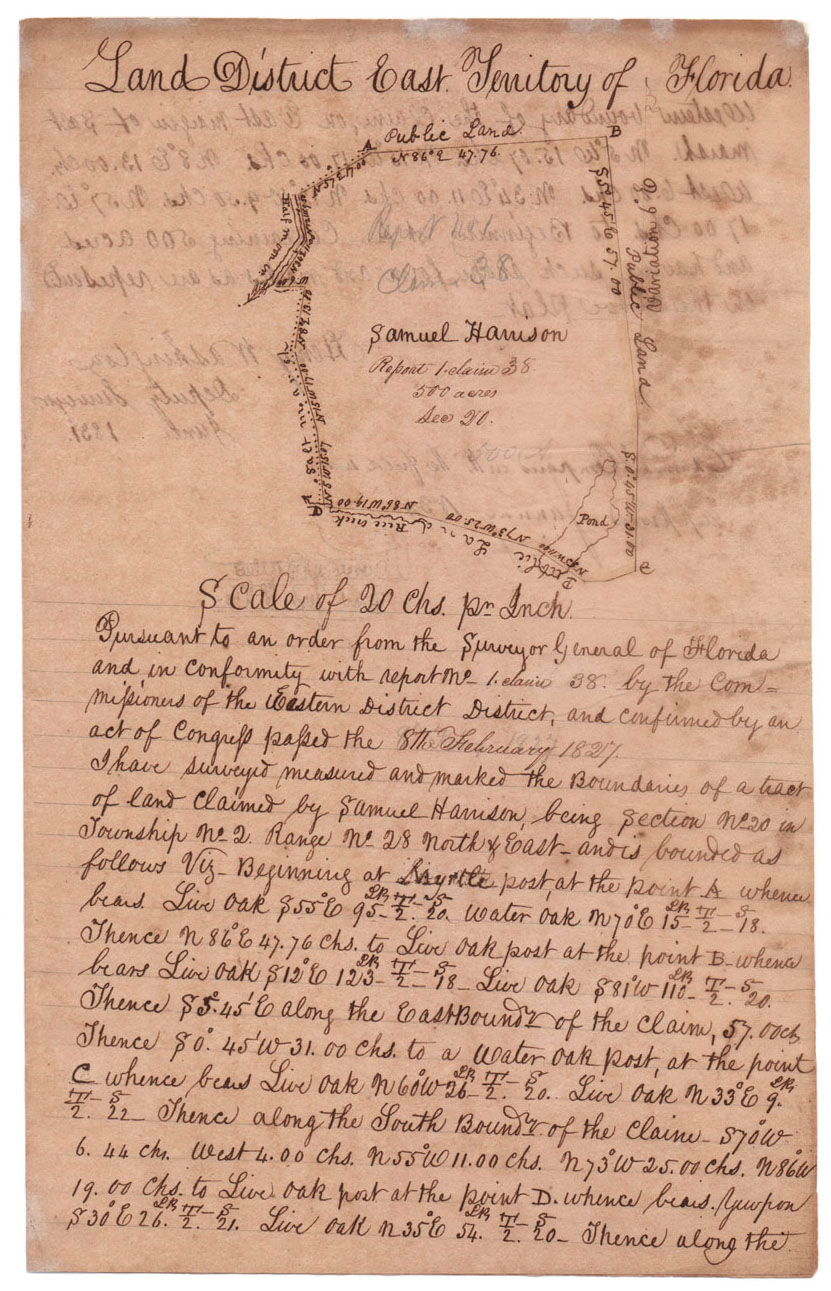 Land District East. Territory of Florida.
A Public Land. B
N 86° E 47.76.
S 5° 45' E 57.00
D. 9 Variation
Public Land
Half moon
Samuel Harrison
Report 1. claim 38.
500 acres
Sec 20.
N 15° W 17.00
S 0° 45' W 31.00
Pond
C
D
N 86° W 19.00
N 73° W 25.00
Rice creek
Public Land
Scale of 20 Chs. pr Inch.
Pursuant to an order from the Surveyor General of Florida
and in conformity with report No 1. claim 38. by the Com=
missioners of the Eastern District District, and confirmed by an
act of Congress passed the 8th February 1827.
I have surveyed measured and marked the Boundaries of a tract
of land claimed by Samuel Harrison, being Section No 20 in
Township No 2. Range No 28 North & East - and is bounded as
follows Viz - Beginning at Myrtle post, at the point A whence
bears Live Oak S 55° E 95 LK T 2. S 20. Water Oak N 70° E 15 LK T 2 S 18.
Thence N 86° E 47.76 Chs. to Live Oak post at the point B - whence
bears Live Oak S 12° E 123 LK T 2. S 18 - Live Oak S 81° W 110 LK T 2. S 20.
Thence S 5°. 45' E along the East Boundy of the Claim, 57.00 ch
Thence S 0°. 45' W 31.00 Chs. to a Water Oak post, at the point
C whence bears Live Oak N 60° W 26 LK T 2. S 20. Live Oak N 33° E 9. LK
T 2. S 22 - Thence along the South Boundy of the Claim - S 70° W
6.44 chs. West 4.00 Chs. N 55° W 11.00 chs. N 73° W 25.00 Chs. N 86° W
19.00 Chs. to Live Oak post at the point D. whence bears. Yuwpon
S 30° E 26. LK T 2. S 21. Live Oak N 35° E 54. LK T 2. S 20 - Thence along the